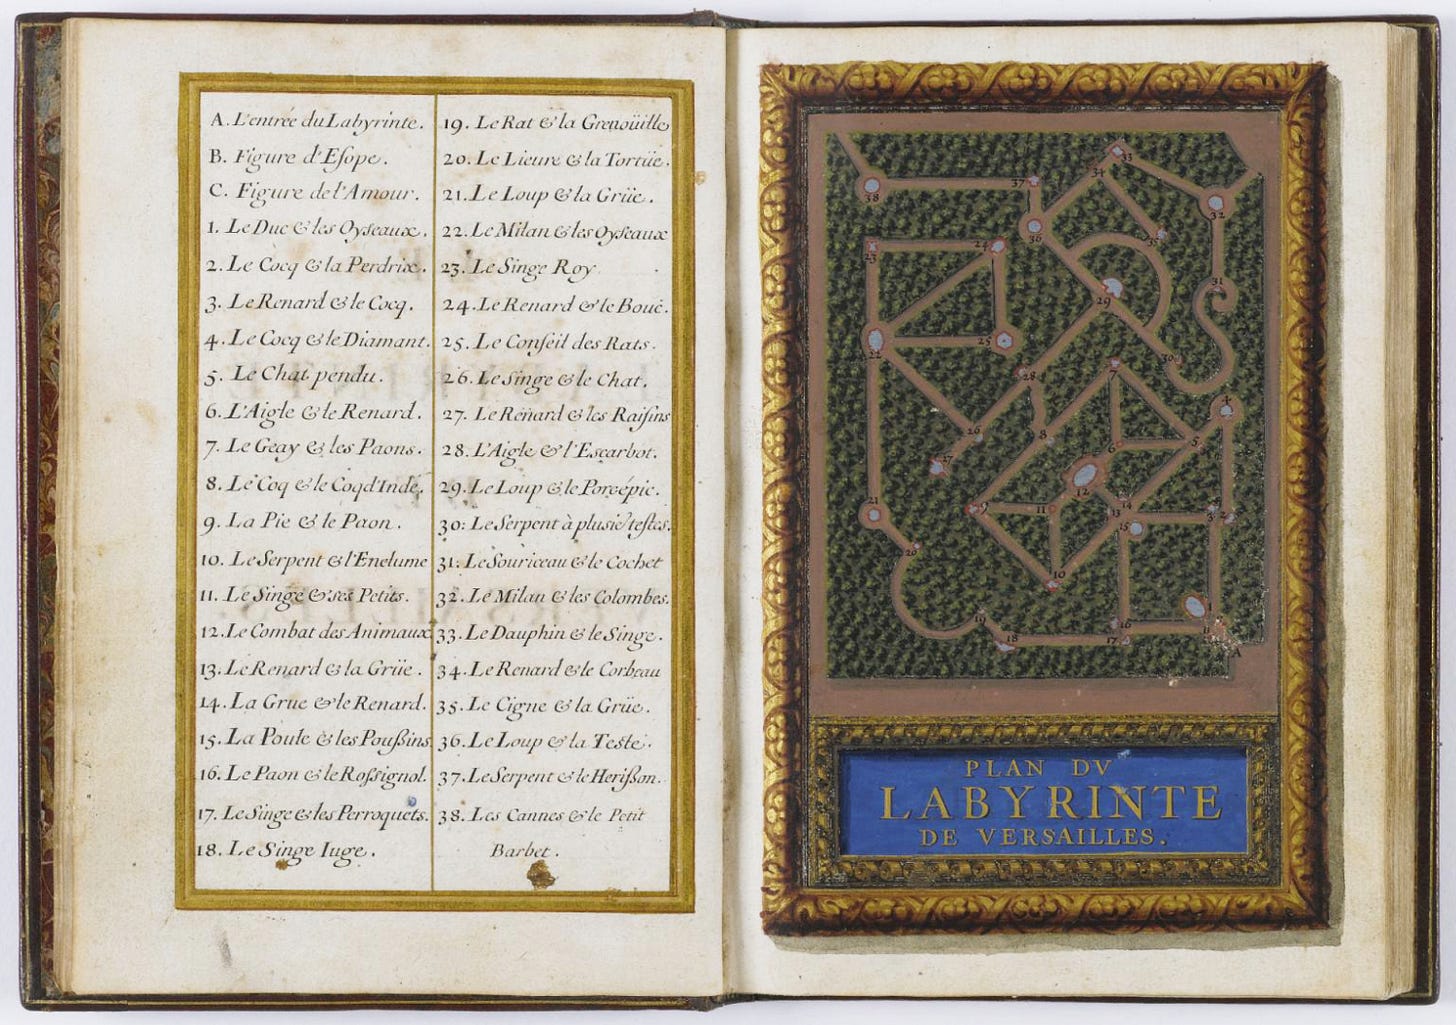 A. L'entrée du Labyrinte.
B. Figure d'Esope.
C. Figure de l'Amour.
1. Le Duc & les Oyseaux.
2. Le Cocq & la Perdrix.
3. Le Renard & le Cocq.
4. Le Cocq & le Diamant.
5. Le Chat pendu.
6. L'Aigle & le Renard.
7. Le Geay & les Paons.
8. Le Coq & le Coq d'Inde.
9. La Pie & le Paon.
10. Le Serpent & l'Enclume
11. Le Singe & ses Petits.
12. Le Combat des Animaux
13. Le Renard & la Grüe.
14. La Grue & le Renard.
15. La Poule & les Poußins.
16. Le Paon & le Rossignol.
17. Le Singe & les Perroquets.
18. Le Singe Iuge.
19. Le Rat & la Grenoüille
20. Le Lieure & la Tortüe.
21. Le Loup & la Grüe.
22. Le Milan & les Oyseaux
23. Le Singe Roy
24. Le Renard & le Bouc.
25. Le Conseil des Rats.
26. Le Singe & le Chat.
27. Le Renard & les Raisins
28. L'Aigle & l'Escarbot.
29. Le Loup & le Porcépic.
30. Le Serpent à plusie.rs testes.
31. Le Souriceau & le Cochet
32. Le Milan & les Colombes.
33. Le Dauphin & le Singe.
34. Le Renard & le Corbeau
35. Le Cigne & la Grüe.
36. Le Loup & la Teste.
37. Le Serpent & le Herißon.
38. Les Cannes & le Petit
Barbet.
33
34
37
38
32
36
35
23
24
31
29
22
25
30
28
7
4
26
8
5
6
27
12
21
9
11
14
13
3
2
15
20
10
19
16
18
17
A
PLAN DV
LABYRINTE
DE VERSAILLES.